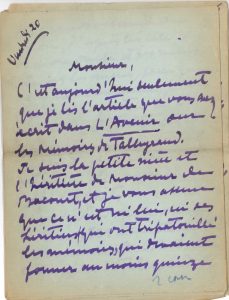 Vendredi 20
Monsieur,
C'est aujourd'hui seulement
que je lis l'article que vous avez
écrit dans L'Avenir sur
les Mémoires de Talleyrand.
Je suis la petite nièce et
l'héritière de Monsieur de
Bacourt, et je vous assure
que ce n'est ni lui, ni ses
héritiers, qui ont tripatouillé
les mémoires, qui devaient
former au moins quinze